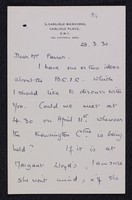 5, CARLISLE MANSIONS,
CARLISLE PLACE,
S.W.1.
28.3.30.
Dear Mr Parsons.
I have one or two ideas
about the B.C.I.C. which
I should like to discuss with
you. Could we meet at
4.30 on April 11th whenever
the Kensington Cttee is being
held? If it is at
Margaret Lloyd's I am sure
she won't mind, & if she